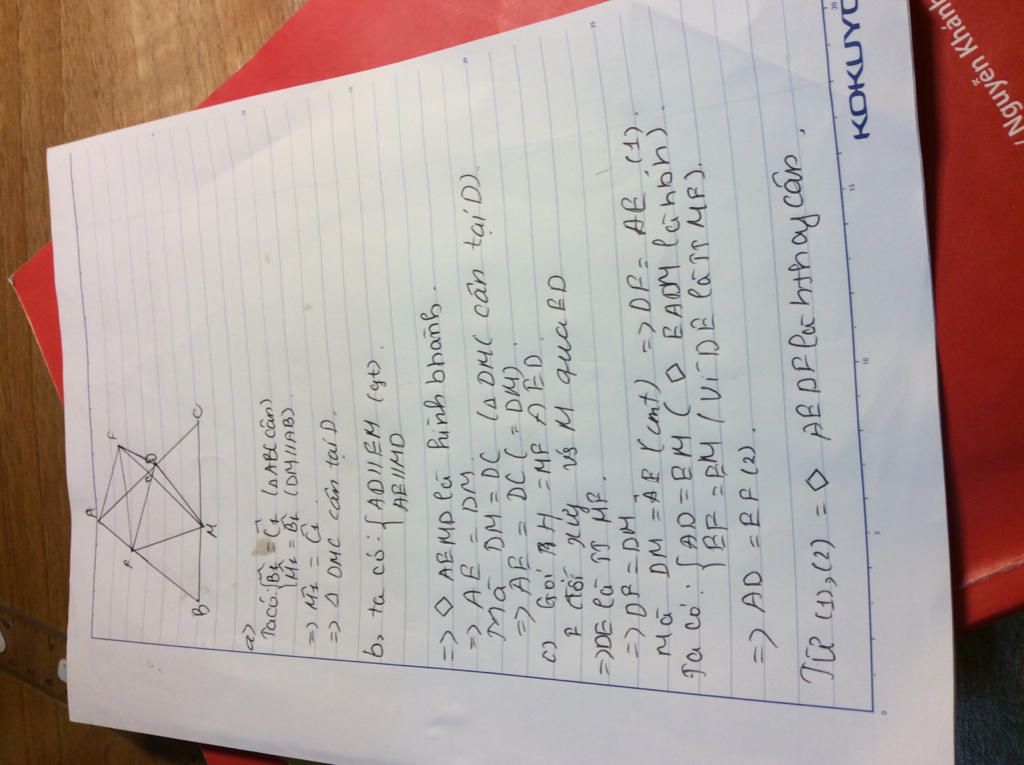 A
F
E
D
B
M
C
a)
Ta có: { B̂₁ = Ĉ₁ (ΔABC cân)
M̂₂ = B̂₁ (DM//AB)
=> M̂₂ = Ĉ₁
=> Δ DMC cân tại D.
b, ta có: { AD//EM (gt)
AE//MD
=> ◇ AEMD là hình bhành.
=> AE = DM
Mà DM = DC (Δ DMC cân tại D).
=> AE = DC (= DM)
c) Gọi H = MF ∧ ED
F đối xứg vs M qua ED
=> DE là TT MF.
=> DF = DM
Mà DM = AE (cmt) => DF = AE (1).
Ta có: { AD = EM (◇ EADM là hbh)
EF = EM (vì DE là TT MF).
=> AD = EF (2).
Từ (1), (2) = ◇ AEDF là hthag cân.
KOKUYO
Nguyễn Khánh
0
5
10
15
20